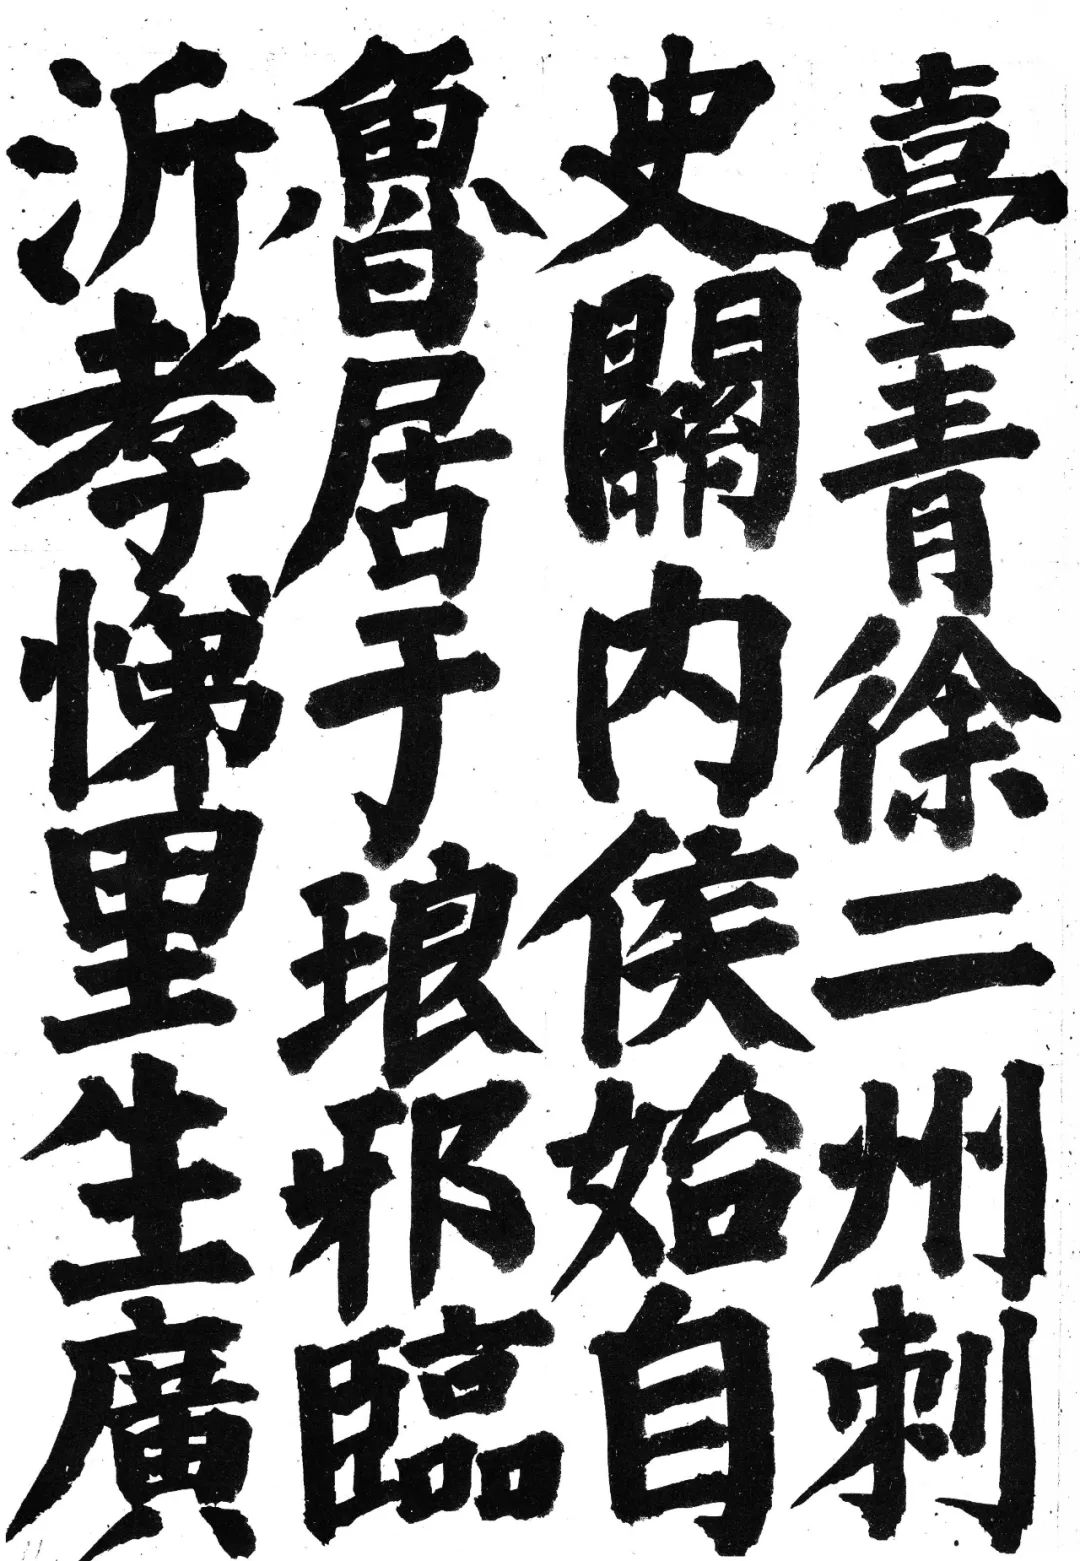 臺青徐二州刺
史關内侯始自
魯居于琅邪臨
沂孝悌里生廣